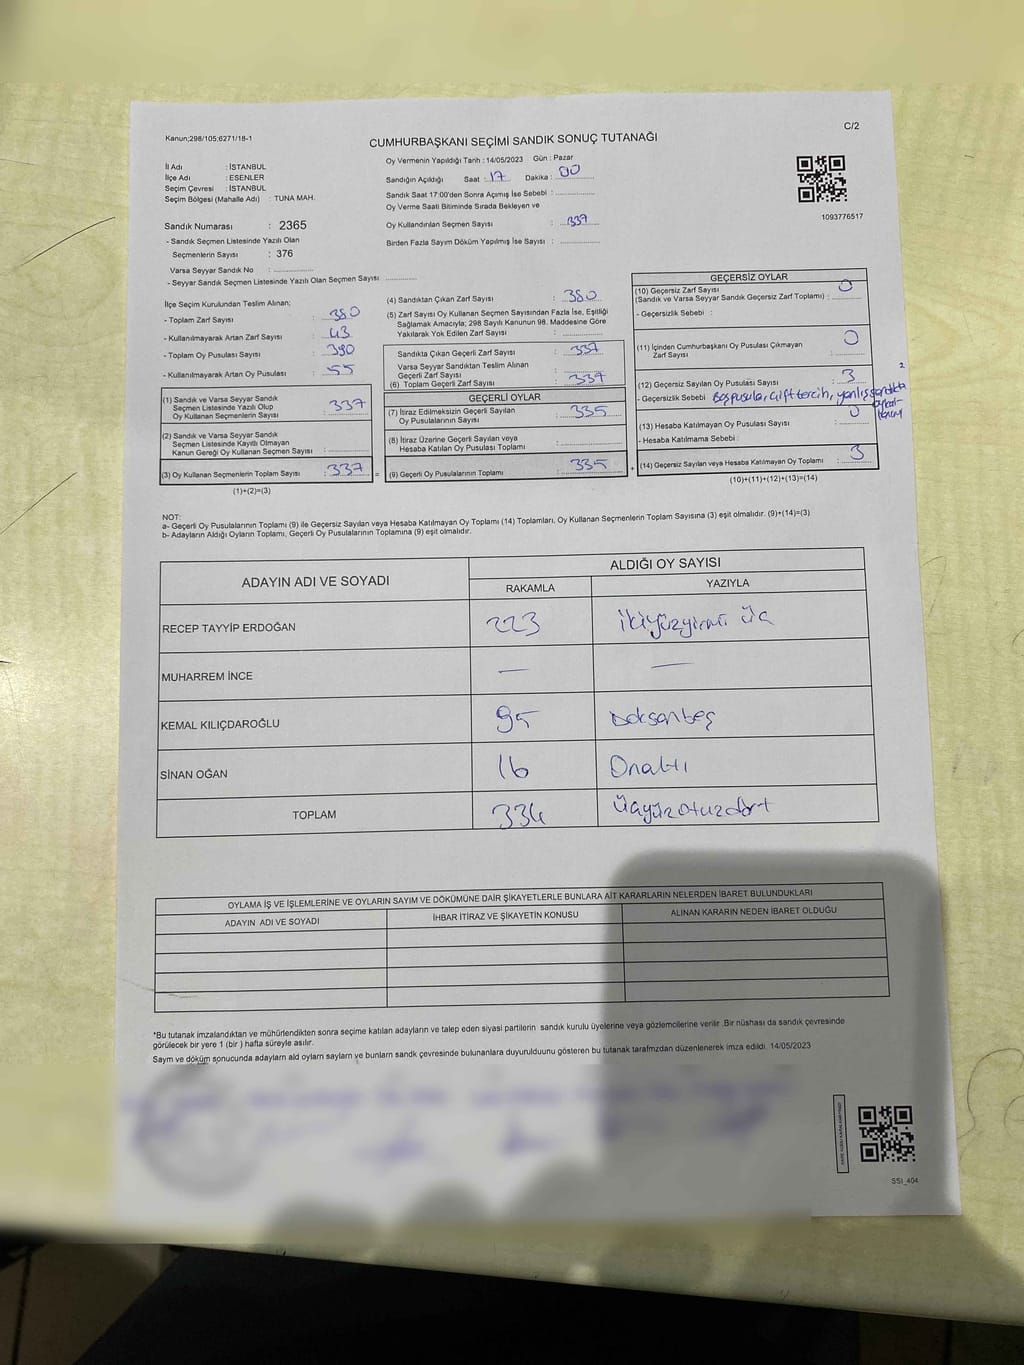 Kanun;298/105;6271/18-1
C/2
CUMHURBAŞKANI SEÇİMİ SANDIK SONUÇ TUTANAĞI
İl Adı : İSTANBUL
İlçe Adı : ESENLER
Seçim Çevresi : İSTANBUL
Seçim Bölgesi (Mahalle Adı) : TUNA MAH.
Oy Vermenin Yapıldığı Tarih : 14/05/2023 Gün : Pazar
Sandığın Açıldığı Saat : 17 Dakika : 00
Sandık Saat 17:00'den Sonra Açımış İse Sebebi :
Oy Verme Saati Bitiminde Sırada Bekleyen ve
Oy Kullandırılan Seçmen Sayısı : 337
Birden Fazla Sayım Döküm Yapılmış İse Sayısı :
1093776517
Sandık Numarası : 2365
- Sandık Seçmen Listesinde Yazılı Olan
Seçmenlerin Sayısı : 376
Varsa Seyyar Sandık No :
- Seyyar Sandık Seçmen Listesinde Yazılı Olan Seçmen Sayısı
İlçe Seçim Kurulundan Teslim Alınan;
- Toplam Zarf Sayısı : 380
- Kullanılmayarak Artan Zarf Sayısı : 43
- Toplam Oy Pusulası Sayısı : 390
- Kullanılmayarak Artan Oy Pusulası : 55
(1) Sandık ve Varsa Seyyar Sandık
Seçmen Listesinde Yazılı Olup
Oy Kullanan Seçmenlerin Sayısı : 337
(2) Sandık ve Varsa Seyyar Sandık
Seçmen Listesinde Kayıtlı Olmayan
Kanun Gereği Oy Kullanan Seçmen Sayısı :
(3) Oy Kullanan Seçmenlerin Toplam Sayısı : 337 =
(1)+(2)=(3)
(4) Sandıktan Çıkan Zarf Sayısı : 380
(5) Zarf Sayısı Oy Kullanan Seçmen Sayısından Fazla İse, Eşitliği
Sağlamak Amacıyla; 298 Sayılı Kanunun 98. Maddesine Göre
Yakılarak Yok Edilen Zarf Sayısı :
Sandıkta Çıkan Geçerli Zarf Sayısı : 337
Varsa Seyyar Sandıktan Teslim Alınan
Geçerli Zarf Sayısı :
(6) Toplam Geçerli Zarf Sayısı : 337
GEÇERLİ OYLAR
(7) İtiraz Edilmeksizin Geçerli Sayılan
Oy Pusulalarının Sayısı : 335
(8) İtiraz Üzerine Geçerli Sayılan veya
Hesaba Katılan Oy Pusulası Toplamı :
(9) Geçerli Oy Pusulalarının Toplamı : 335 +
GEÇERSİZ OYLAR
(10) Geçersiz Zarf Sayısı
(Sandık ve Varsa Seyyar Sandık Geçersiz Zarf Toplamı) : 0
- Geçersizlik Sebebi :
(11) İçinden Cumhurbaşkanı Oy Pusulası Çıkmayan
Zarf Sayısı : 0
(12) Geçersiz Sayılan Oy Pusulası Sayısı : 3
- Geçersizlik Sebebi Boş pusula, çift tercih, yanlış sandıkta
(13) Hesaba Katılmayan Oy Pusulası Sayısı : 0
- Hesaba Katılmama Sebebi :
(14) Geçersiz Sayılan veya Hesaba Katılmayan Oy Toplamı : 3
(10)+(11)+(12)+(13)=(14)
NOT:
a- Geçerli Oy Pusulalarının Toplamı (9) ile Geçersiz Sayılan veya Hesaba Katılmayan Oy Toplamı (14) Toplamları, Oy Kullanan Seçmenlerin Toplam Sayısına (3) eşit olmalıdır. (9)+(14)=(3)
b- Adayların Aldığı Oyların Toplamı, Geçerli Oy Pusulalarının Toplamına (9) eşit olmalıdır.
ADAYIN ADI VE SOYADI
ALDIĞI OY SAYISI
RAKAMLA YAZIYLA
RECEP TAYYİP ERDOĞAN 223 ikiyüzyirmi üç
MUHARREM İNCE — —
KEMAL KILIÇDAROĞLU 95 Doksanbeş
SİNAN OĞAN 16 Onaltı
TOPLAM 334 üçyüzotuzdört
OYLAMA İŞ VE İŞLEMLERİNE VE OYLARIN SAYIM VE DÖKÜMÜNE DAİR ŞİKAYETLERLE BUNLARA AİT KARARLARIN NELERDEN İBARET BULUNDUKLARI
ADAYIN ADI VE SOYADI İHBAR İTİRAZ VE ŞİKAYETİN KONUSU ALINAN KARARIN NEDEN İBARET OLDUĞU
*Bu tutanak imzalandıktan ve mühürlendikten sonra seçime katılan adayların ve talep eden siyasi partilerin sandık kurulu üyelerine veya gözlemcilerine verilir .Bir nüshası da sandık çevresinde
görülecek bir yere 1 (bir ) hafta süreyle asılır.
Saym ve döküm sonucunda adaylarn ald oylarn saylarn ve bunlarn sandk çevresinde bulunanlara duyurulduunu gösteren bu tutanak tarafmzdan düzenlenerek imza edildi. 14/05/2023
SSI_404